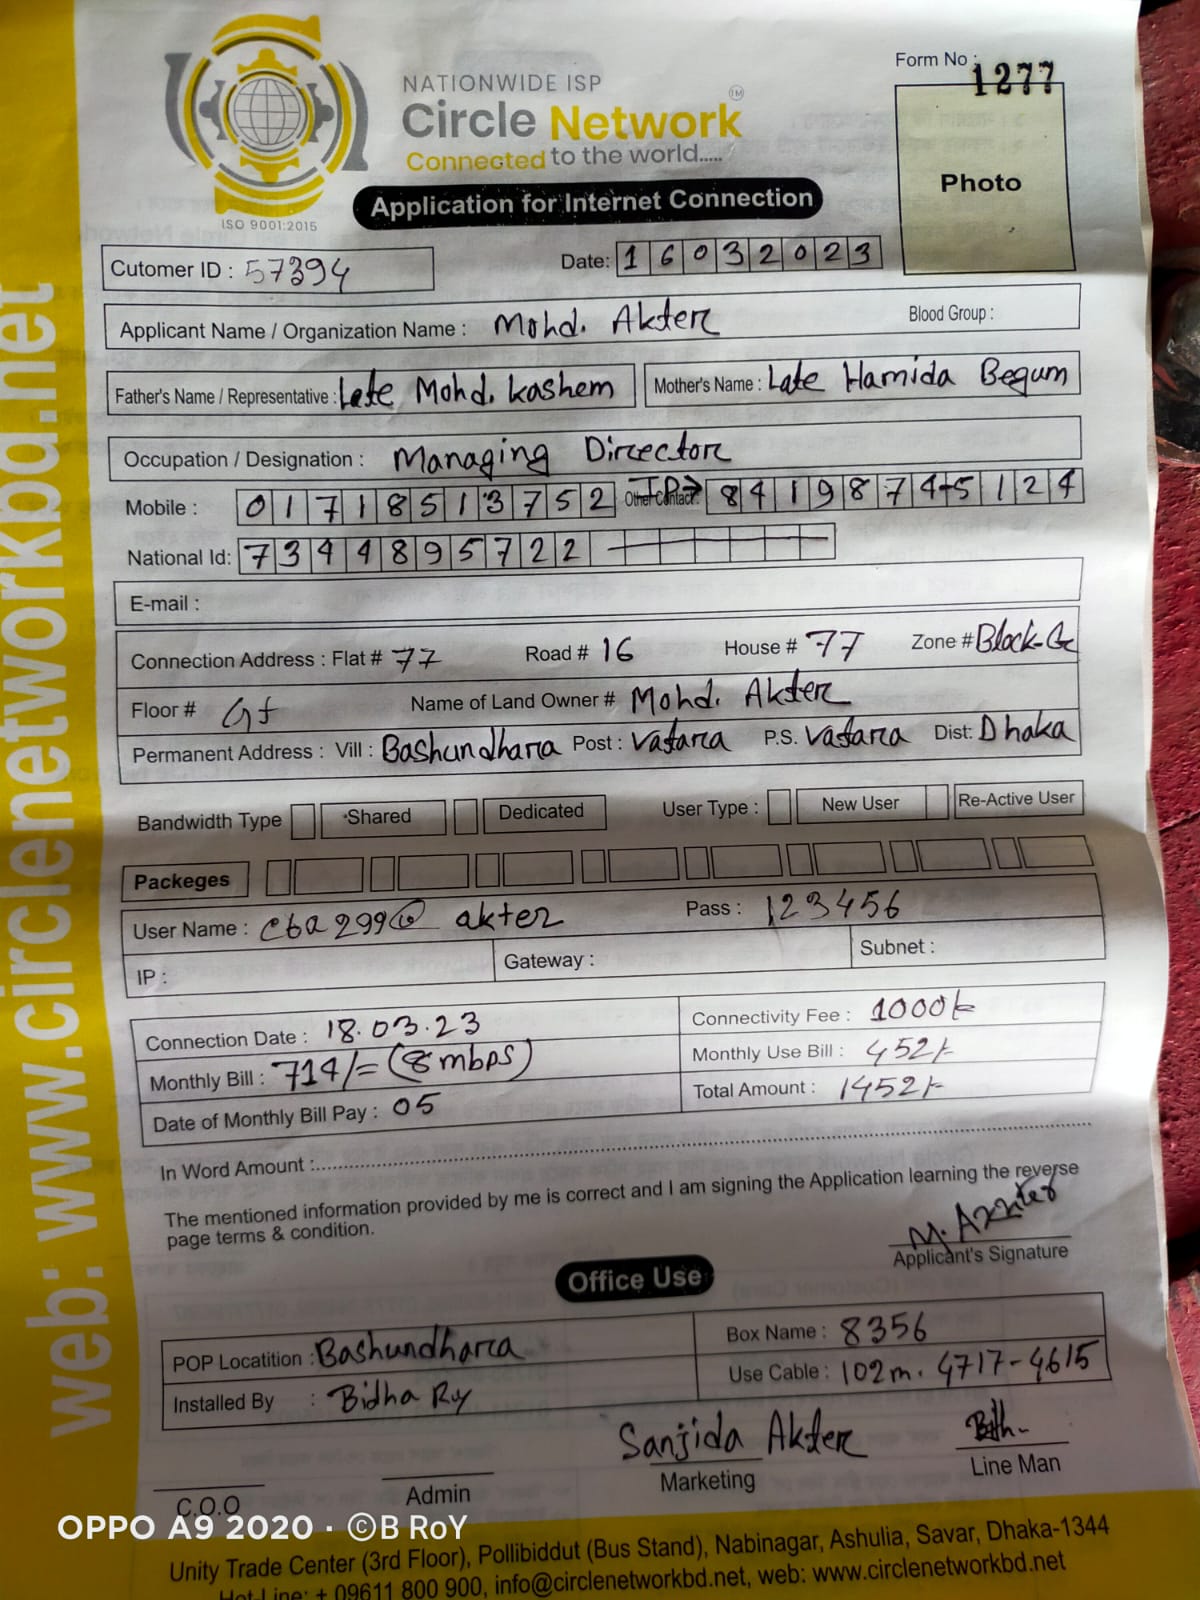 Form No : 1277
NATIONWIDE ISP
Circle Network TM
Connected to the world.....
ISO 9001:2015
Application for Internet Connection
Photo
Cutomer ID : 57394
Date: 16032023
Applicant Name / Organization Name : Mohd. Akter Blood Group :
Father's Name / Representative : Late Mohd. Kashem Mother's Name : Late Hamida Begum
Occupation / Designation : Managing Director
Mobile : 01718513752 Other Contact: IP→ 84198745124
National Id: 7344895722
E-mail :
Connection Address : Flat # 77 Road # 16 House # 77 Zone # Block-G
Floor # Gf Name of Land Owner # Mohd. Akter
Permanent Address : Vill : Bashundhara Post : Vatara P.S. Vatara Dist: Dhaka
Bandwidth Type Shared Dedicated User Type : New User Re-Active User
Packeges
User Name : cba299@ akter Pass : 123456
IP : Gateway : Subnet :
Connection Date : 18.03.23 Connectivity Fee : 1000/-
Monthly Bill : 714/= (8mbps) Monthly Use Bill : 452/-
Date of Monthly Bill Pay : 05 Total Amount : 1452/-
In Word Amount :
The mentioned information provided by me is correct and I am signing the Application learning the reverse
page terms & condition.
M. Akhter
Applicant's Signature
Office Use
POP Locatition : Bashundhara Box Name : 8356
Installed By : Bidha Roy Use Cable : 102m. 4717-4615
Sanjida Akter
C.O.O Admin Marketing Line Man
Unity Trade Center (3rd Floor), Pollibiddut (Bus Stand), Nabinagar, Ashulia, Savar, Dhaka-1344
Hot Line: + 09611 800 900, info@circlenetworkbd.net, web: www.circlenetworkbd.net
web: www.circlenetworkbd.net
OPPO A9 2020 · ©B RoY